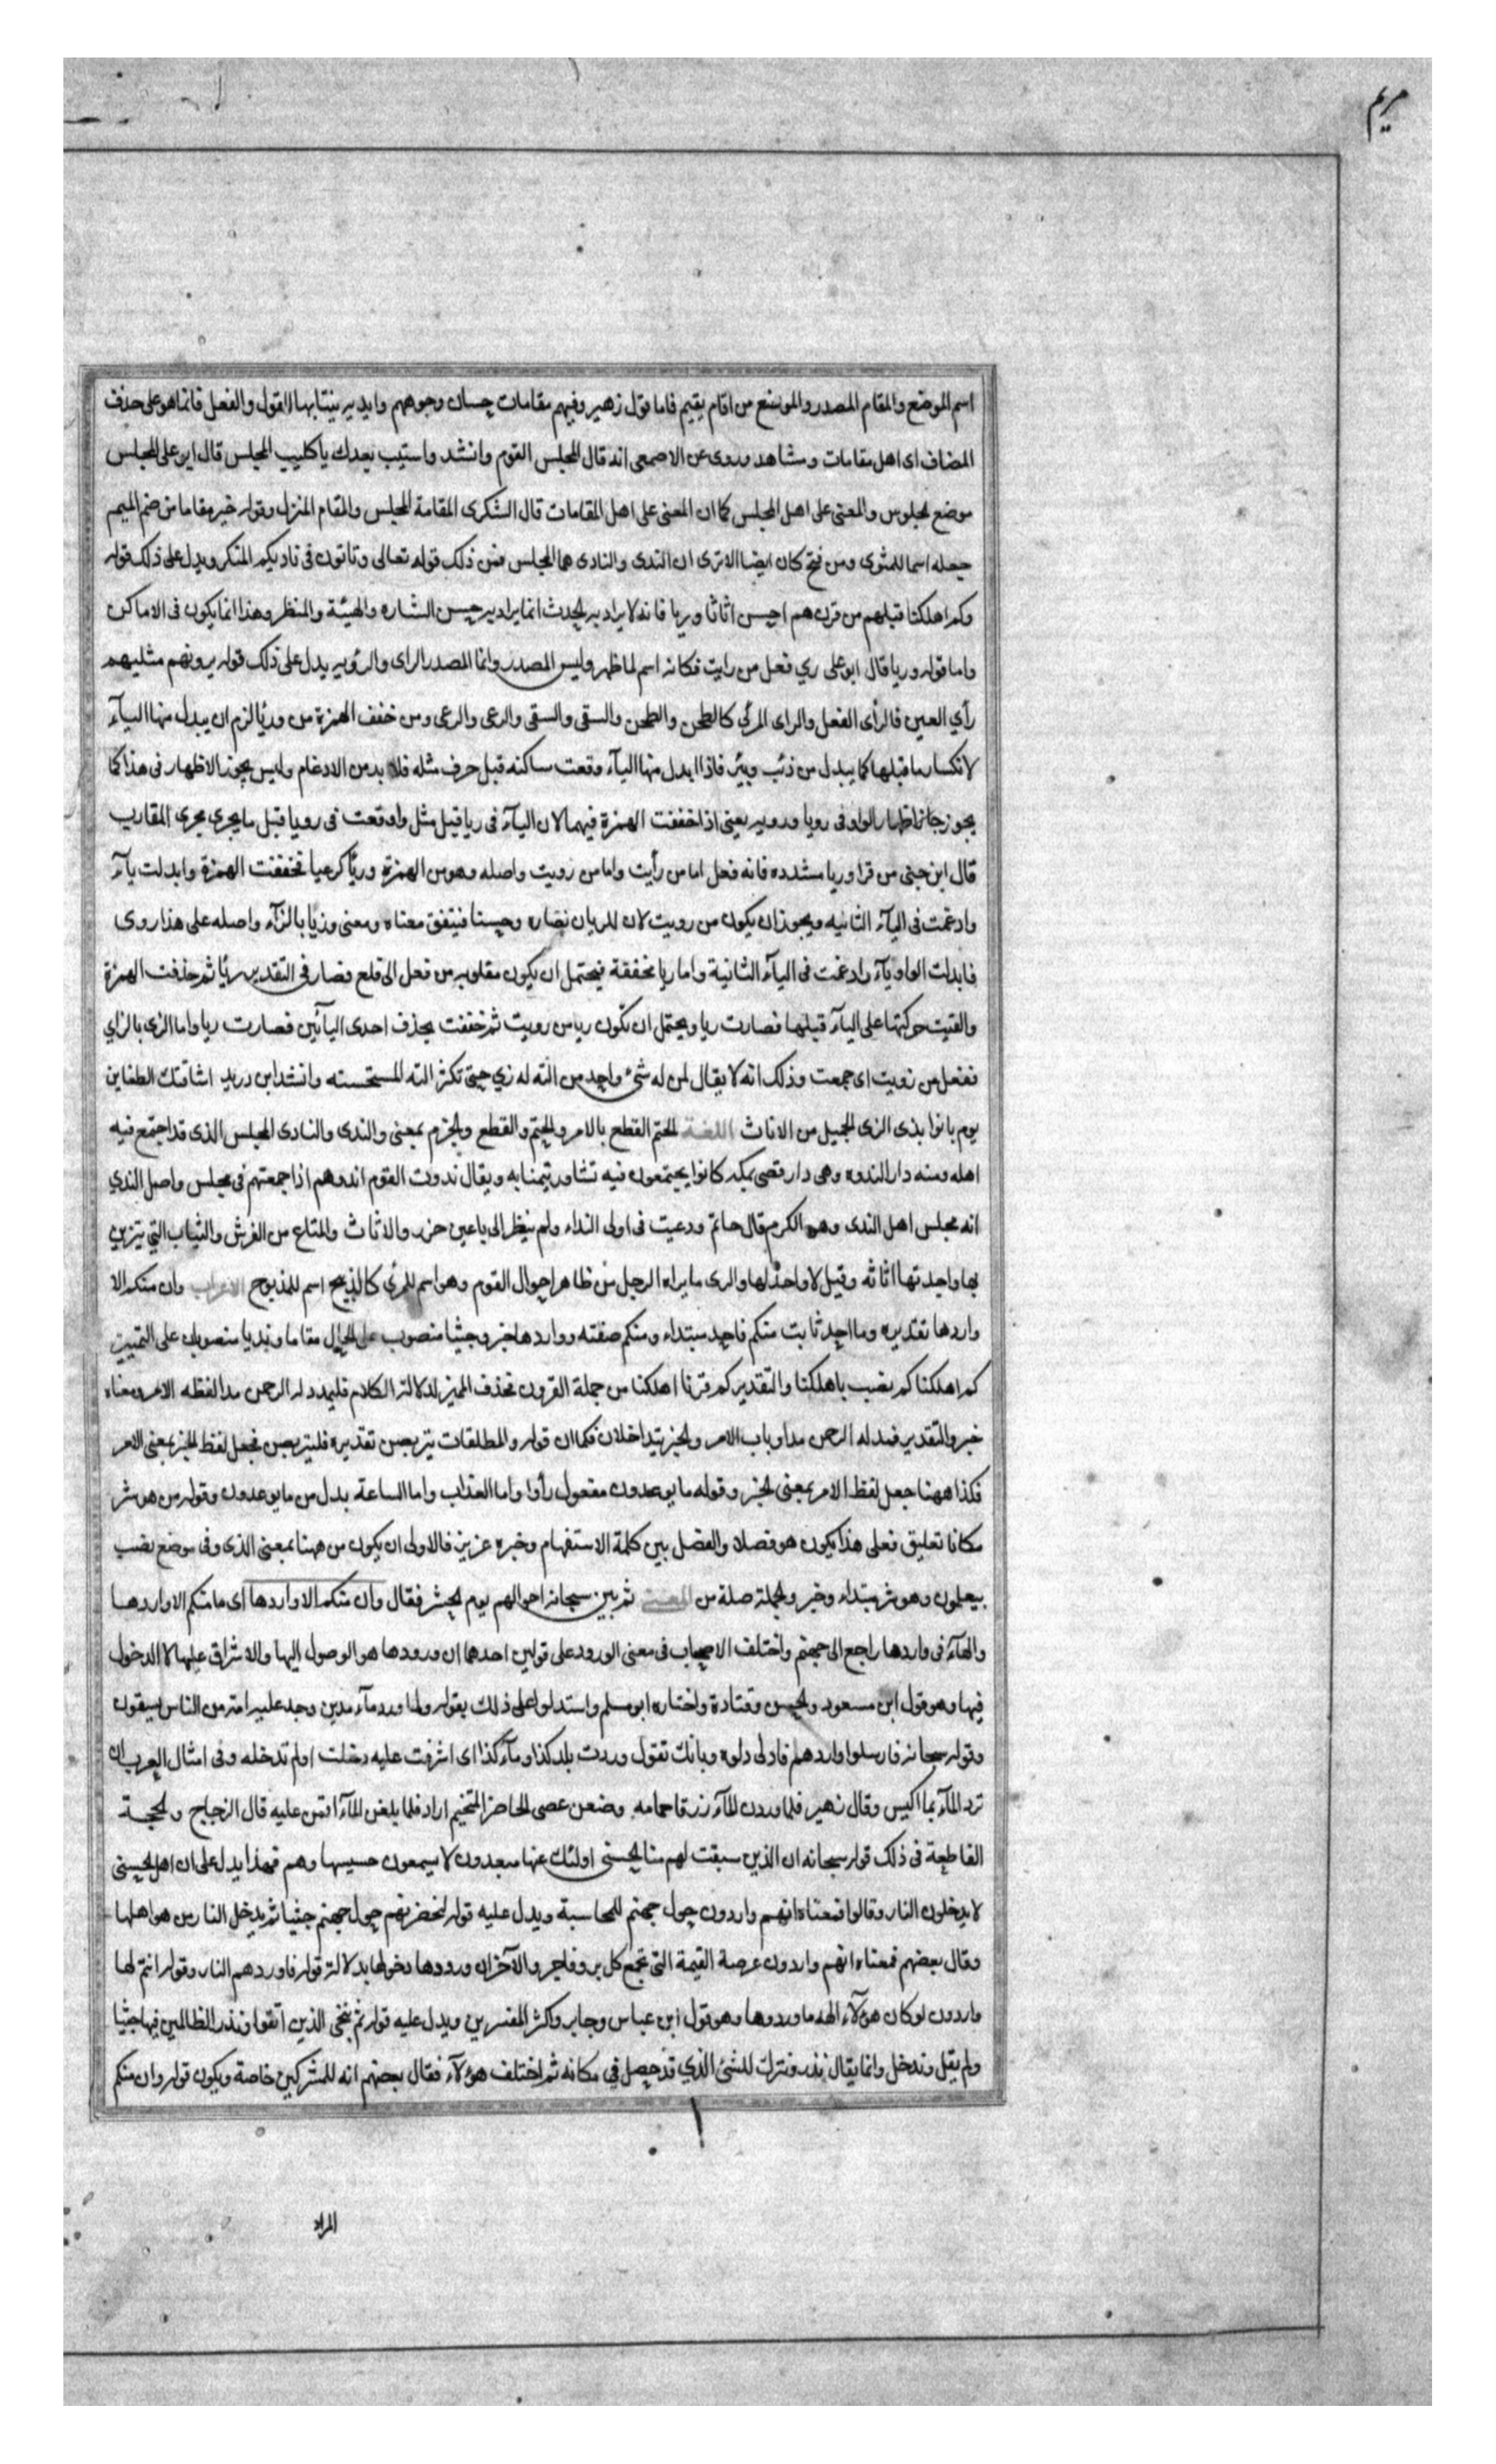 مريم
اسم الموضع والمقام المصدر والموضع من اقام يقيم فاما قول زهير وفيهم مقامات حسان وجوههم واندية ينتابها القول والفعل فانما هو على حذف
المضاف اى اهل مقامات ومشاهد وروى عن الاصمعى انه قال المجلس القوم وانشد واستب بعدك يا كليب المجلس قال ابو على المجلس
موضع الجلوس والمعنى على اهل المجلس كما ان المعنى على اهل المقامات قال السكرى المقامة المجلس والمقام المنزل وقوله خير مقاما من ضم الميم
جعله اسما للمثوى ومن فتح كان ايضا الا ترى ان الندى والنادى هما المجلس فمن ذلك قوله تعالى وتاتون فى ناديكم المنكر ويدل على ذلك قوله
وكم اهلكنا قبلهم من قرن هم احسن اثاثا وريا فانه لا يراد به الحدث انما يراد به حسن الشاره والهيئة والمنظر وهذا انما يكون فى الاماكن
واما قوله وريا قال ابو على ري فعل من رايت فكانه اسم لما ظهر وليس المصدر وانما المصدر الراى والرؤيه يدل على ذلك قوله يرونهم مثليهم
رأي العين فالرأى الفعل والراى المرئى كالطحن والطحن والسقى والسقى والرعى والرعى ومن خفف الهمزة من ورئيا لزم ان يبدل منها اليآء
لانكسار ما قبلها كما يبدل من ذئب وبئر فاذا ابدل منها اليآء وقعت ساكنه قبل حرف مثله فلا بد من الادغام وليس يجوز الاظهار فى هذا كما
يجوز اظهار الواو فى رويا ورويه يعنى اذا خففت الهمزة فيهما لان اليآء فى ريا قبل مثل واو وقعت فى رويا قبل ما يجرى مجرى المقارب
قال ابن جنى من قرا وريا مشدده فانه فعل اما من رأيت واما من رويت واصله وهو من الهمزة ورئيا كرعيا فخففت الهمزة وابدلت يآء
وادغمت فى اليآء الثانيه ويجوز ان يكون من رويت لان للريان نضاره وحسنا فيتفق معناه ومعنى وزيا بالزآء واصله على هذا روى
فابدلت الواو يآء وادغمت فى اليآء الثانية واما ريا مخففة فيحتمل ان يكون مقلوبه من فعل الى فلع فصار فى التقدير ريئا ثم حذفت الهمزة
والقيت حركتها على اليآء قبلها فصارت ريا ويحتمل ان تكون ريا من رويت ثم خففت بحذف احدى اليآئين فصارت ريا واما الزى بالزاي
ففعل من زويت اى جمعت وذلك انه لا يقال لمن له شىء واحد من آلته له زي حتى تكثر آلته المستحسنه وانشد ابن دريد اشاقتك الظعاين
يوم بانوا بذى الزى الجميل من الاثاث اللغة الحتم القطع بالامر والحتم والقطع والجزم بمعنى والندى والنادى المجلس الذى قد اجتمع فيه
اهله ومنه دار الندوه وهى دار قصى بمكه كانوا يجتمعون فيه تشاور تيمنا به ويقال ندوت القوم اندوهم اذا جمعتهم فى مجلس واصل الندي
انه مجلس اهل الندى وهو الكرم قال حاتم ودعيت فى اولى النداء ولم ينظر الى باعين خزر والاثاث والمتاع من الفرش والثياب التي يتزين
بها واحدتها اثاثه وقيل لا واحد لها والرى ما يراه الرجل من ظاهر احوال القوم وهو اسم للمرئ كالذبح اسم للمذبوح الاعراب وان منكم الا
واردها تقديره وما احد ثابت منكم فاحد مبتداء ومنكم صفته وواردها خبر وجثيا منصوب على الحال مقاما ونديا منصوبان على التمييز
كم اهلكنا كم نصب باهلكنا والتقدير كم قرنا اهلكنا من جملة القرون فحذف المميز لدلالة الكلام فليمدد له الرحمن مدا لفظه الامر ومعناه
خبر والتقدير فيمد له الرحمن مدا وباب الامر والخبر يتداخلان فكما ان قوله والمطلقات يتربصن تقديره فليتربصن فجعل لفظ الخبر بمعنى الامر
فكذا ههنا جعل لفظ الامر بمعنى الخبر وقوله ما يوعدون مفعول رأوا واما العذاب واما الساعة بدل من ما يوعدون وقوله من هو شر
مكانا تعليق فعلى هذا يكون هو فصلا والفصل بين كلمة الاستفهام وخبره عزيز فالاولى ان يكون من ههنا بمعنى الذى وفى موضع نصب
بيعلمون وهو شر مبتداء وخبر والجملة صلة من المعنى ثم بين سبحانه احوالهم يوم الحشر فقال وان منكم الا واردها اى ما منكم الا واردها
والهآء فى واردها راجع الى جهنم واختلف الاصحاب فى معنى الورود على قولين احدهما ان ورودها هو الوصول اليها والاشراق عليها لا الدخول
فيها وهو قول ابن مسعود والحسن وقتادة واختاره ابو مسلم واستدلوا على ذلك بقوله ولما ورد مآء مدين وجد عليه امة من الناس يسقون
وقوله سبحانه فارسلوا واردهم فادلى دلوه وبانك تقول وردت بلد كذا ومآء كذا اى اشرفت عليه دخلت او لم تدخله وفى امثال العرب ان
ترد المآء بما اكيس وقال زهير فلما وردن المآء زرقا جمامه وضعن عصى الحاضر المتخيم اراد فلما بلغن المآء اقمن عليه قال الزجاج والحجة
القاطعة فى ذلك قوله سبحانه ان الذين سبقت لهم منا الحسنى اولئك عنها مبعدون لا يسمعون حسيسها وهم فهذا يدل على ان اهل الحسنى
لا يدخلون النار وقالوا فمعناه انهم واردون حول جهنم للمحاسبة ويدل عليه قوله لنحضرنهم حول جهنم جثيا ثم يدخل النار من هو اهلها
وقال بعضهم فمعناه انهم واردون عرصة القيمة التى تجمع كل بر وفاجر والآخر ان ورودها دخولها بدلالة قوله فاوردهم النار وقوله انتم لها
واردون لو كان هؤلآء الهه ما وردوها وهو قول ابن عباس وجابر واكثر المفسرين ويدل عليه قوله ثم ننجى الذين اتقوا ونذر الظالمين فيها جثيا
ولم يقل وندخل وانما يقال نذر ونترك للشئ الذي قد حصل في مكانه ثم اختلف هؤلآء فقال بعضهم انه للمشركين خاصة ويكون قوله وان منكم
المراد